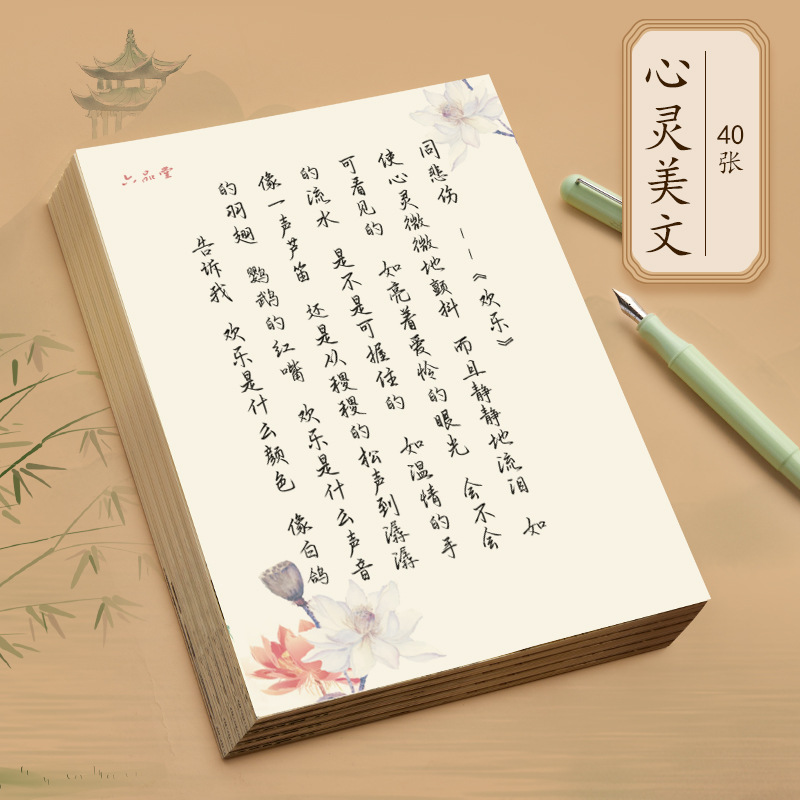 六品堂
告诉我 欢乐是什么颜色 像白鸽
的羽翅 鹦鹉的红嘴 欢乐是什么声音
像一声芦笛 还是从稷稷的松声到潺潺
的流水 是不是可握住的 如温情的手
可看见的 如亮着爱怜的眼光 会不会
使心灵微微地颤抖 而且静静地流泪 如
同悲伤 ——《欢乐》
心灵美文
40张